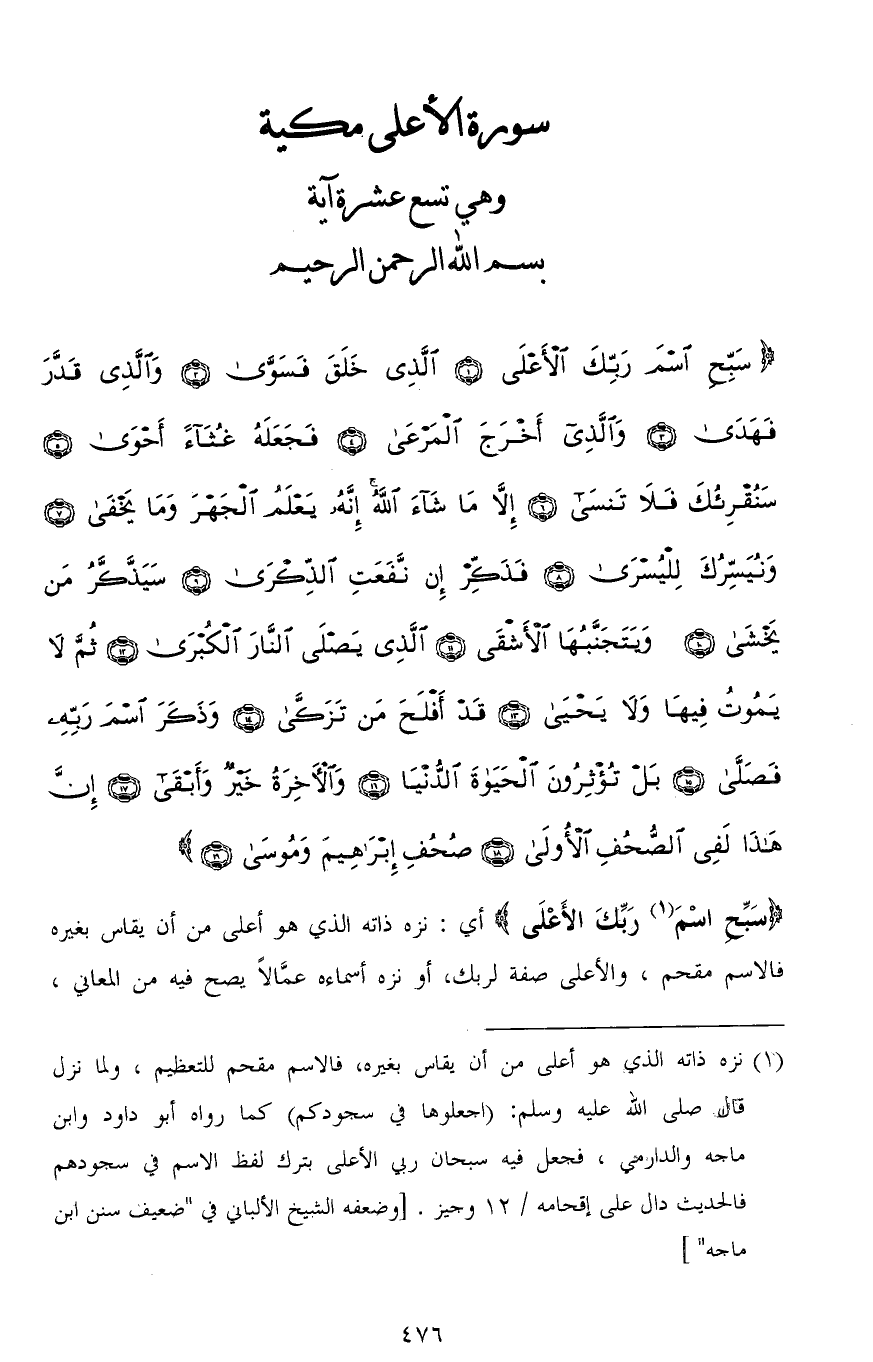 سورة الأعلى مكية
وهي تسع عشرة آية
بسم الله الرحمن الرحيم
﴿ سَبِّحِ ٱسْمَ رَبِّكَ ٱلْأَعْلَى ١ ٱلَّذِى خَلَقَ فَسَوَّىٰ ٢ وَٱلَّذِى قَدَّرَ
فَهَدَىٰ ٣ وَٱلَّذِىٓ أَخْرَجَ ٱلْمَرْعَىٰ ٤ فَجَعَلَهُ غُثَآءً أَحْوَىٰ ٥
سَنُقْرِئُكَ فَلَا تَنسَىٰٓ ٦ إِلَّا مَا شَآءَ ٱللَّهُۚ إِنَّهُۥ يَعْلَمُ ٱلْجَهْرَ وَمَا يَخْفَىٰ ٧
وَنُيَسِّرُكَ لِلْيُسْرَىٰ ٨ فَذَكِّرْ إِن نَّفَعَتِ ٱلذِّكْرَىٰ ٩ سَيَذَّكَّرُ مَن
يَخْشَىٰ ١٠ وَيَتَجَنَّبُهَا ٱلْأَشْقَى ١١ ٱلَّذِى يَصْلَى ٱلنَّارَ ٱلْكُبْرَىٰ ١٢ ثُمَّ لَا
يَمُوتُ فِيهَا وَلَا يَحْيَىٰ ١٣ قَدْ أَفْلَحَ مَن تَزَكَّىٰ ١٤ وَذَكَرَ ٱسْمَ رَبِّهِۦ
فَصَلَّىٰ ١٥ بَلْ تُؤْثِرُونَ ٱلْحَيَوٰةَ ٱلدُّنْيَا ١٦ وَٱلْأَخِرَةُ خَيْرٌ وَأَبْقَىٰٓ ١٧ إِنَّ
هَٰذَا لَفِى ٱلصُّحُفِ ٱلْأُولَىٰ ١٨ صُحُفِ إِبْرَٰهِيمَ وَمُوسَىٰ ١٩ ﴾
﴿سَبِّحِ اسْمَ(١) رَبِّكَ الأَعْلَى ﴾ أي : نزه ذاته الذي هو أعلى من أن يقاس بغيره
فالاسم مقحم ، والأعلى صفة لربك، أو نزه أسماءه عمَّالاً يصح فيه من المعاني ،
(١) نزه ذاته الذي هو أعلى من أن يقاس بغيره، فالاسم مقحم للتعظيم ، ولما نزل
قال صلى الله عليه وسلم: (اجعلوها في سجودكم) كما رواه أبو داود وابن
ماجه والدارمي ، فجعل فيه سبحان ربي الأعلى بترك لفظ الاسم في سجودهم
فالحديث دال على إقحامه / ١٢ وجيز . [وضعفه الشيخ الألباني في "ضعيف سنن ابن
ماجه" ]
٤٧٦